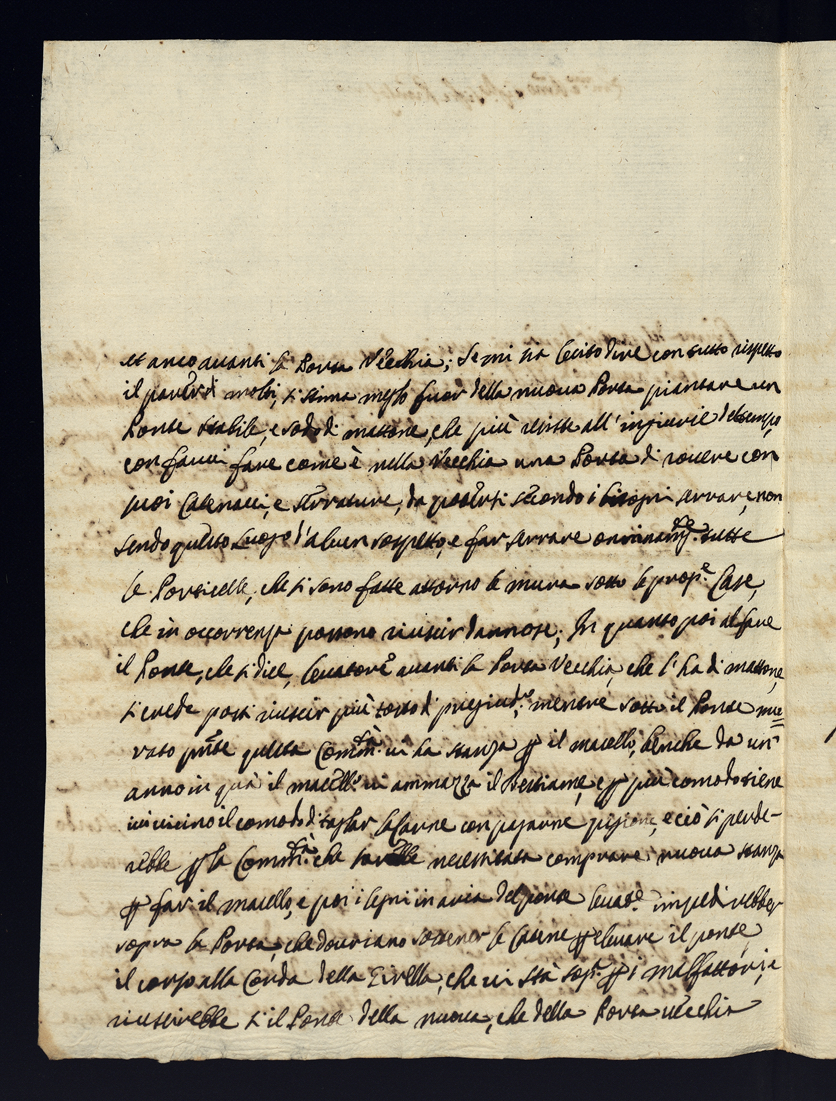 et anco avanti la Porta Vecchia; Se mi sia lecito dire con tutto rispetto
il parer di molti, si stima meglo fuor della nuova Porta piantare un
Ponte stabile, e sodo di mattone, che più resiste all'ingiurie del tempo,
con farvi fare come è nella Vecchia una Porta di rovere con
suoi Catenacci, e serrature, da potersi secondo i bisogni serrare, non
sendo questo Luogo d'alcun sospetto, e far serrare onninamte tutte
le Porticelle, che si sono fatte attorno le mura sotto le prope Case,
che in occorrenza possono riuscir dannose; In quanto poi al fare
il Ponte, che si dice, levatore avanti la Porta Vecchia, che l'ha di mattone,
si crede possi riuscir più tosto di pregiude, mentre sotto il Ponte mu=
rato pnte questa Commtà vi ha stanza p il macello, benche da un'
anno in quà il macello vi ammazza il bestiame, e p più comodo tiene
ivi vicino il comodo di taglar la Carne con pagarne pigione, e ciò si perde-
rebbe p la Commtà che sarebbe necessitata comprare nuova stanza
p far il macello, e poi i legni in aria del ponte levate impedirebbero
sopra la Porta, che dovriano sostener le Catene p elevare il ponte
il corso alla Corda della Girella, che vi stà sopa p i malfattori, e
riuscirebbe sì il Ponte della nuova, che della Porta vecchia